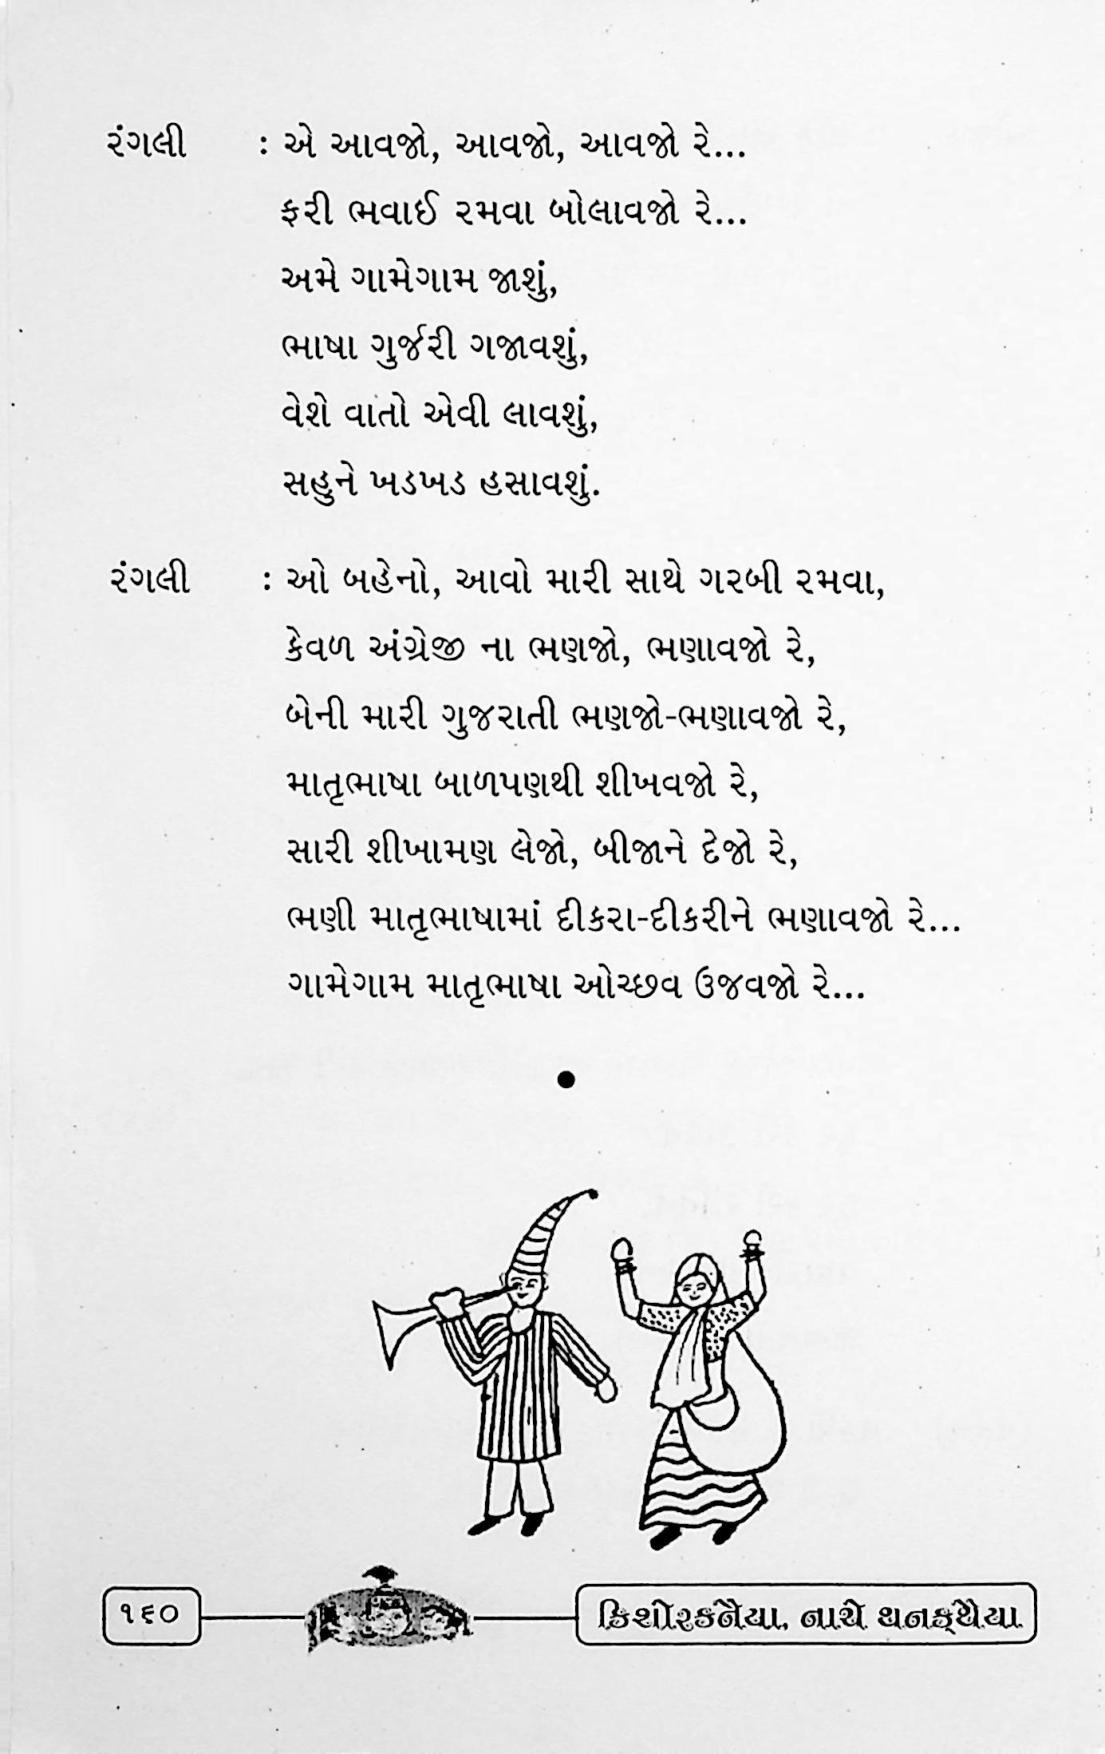 રંગલી : એ આવજો, આવજો, આવજો રે...
ફરી ભવાઈ રમવા બોલાવજો રે...
અમે ગામેગામ જાશું,
ભાષા ગુર્જરી ગજાવશું,
વેશે વાતો એવી લાવશું,
સહુને ખડખડ હસાવશું.
રંગલી : ઓ બહેનો, આવો મારી સાથે ગરબી રમવા,
કેવળ અંગ્રેજી ના ભણજો, ભણાવજો રે,
બેની મારી ગુજરાતી ભણજો-ભણાવજો રે,
માતૃભાષા બાળપણથી શીખવજો રે,
સારી શીખામણ લેજો, બીજાને દેજો રે,
ભણી માતૃભાષામાં દીકરા-દીકરીને ભણાવજો રે...
ગામેગામ માતૃભાષા ઓચ્છવ ઉજવજો રે...
૧૬૦
કિશોરકનૈયા, નાચે થનક્થૈયા